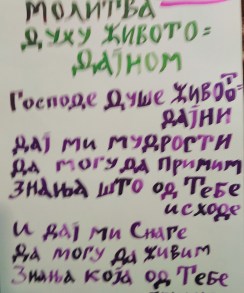 МОЛИТВА
ДУХУ ЖИВОТО=
ДАЈНОМ
Господе Душе ЖИВОТО
ДАЈНИ
ДАЈ МИ МУДРОСТИ
ДА МОГУ ДА ПРИМИМ
ЗНАЊА ШТО ОД ТЕБЕ
ИСХОДЕ
И ДАЈ МИ СНАГЕ
ДА МОГУ ДА ЖИВИМ
ЗНАЊА КОЈА ОД ТЕБЕ